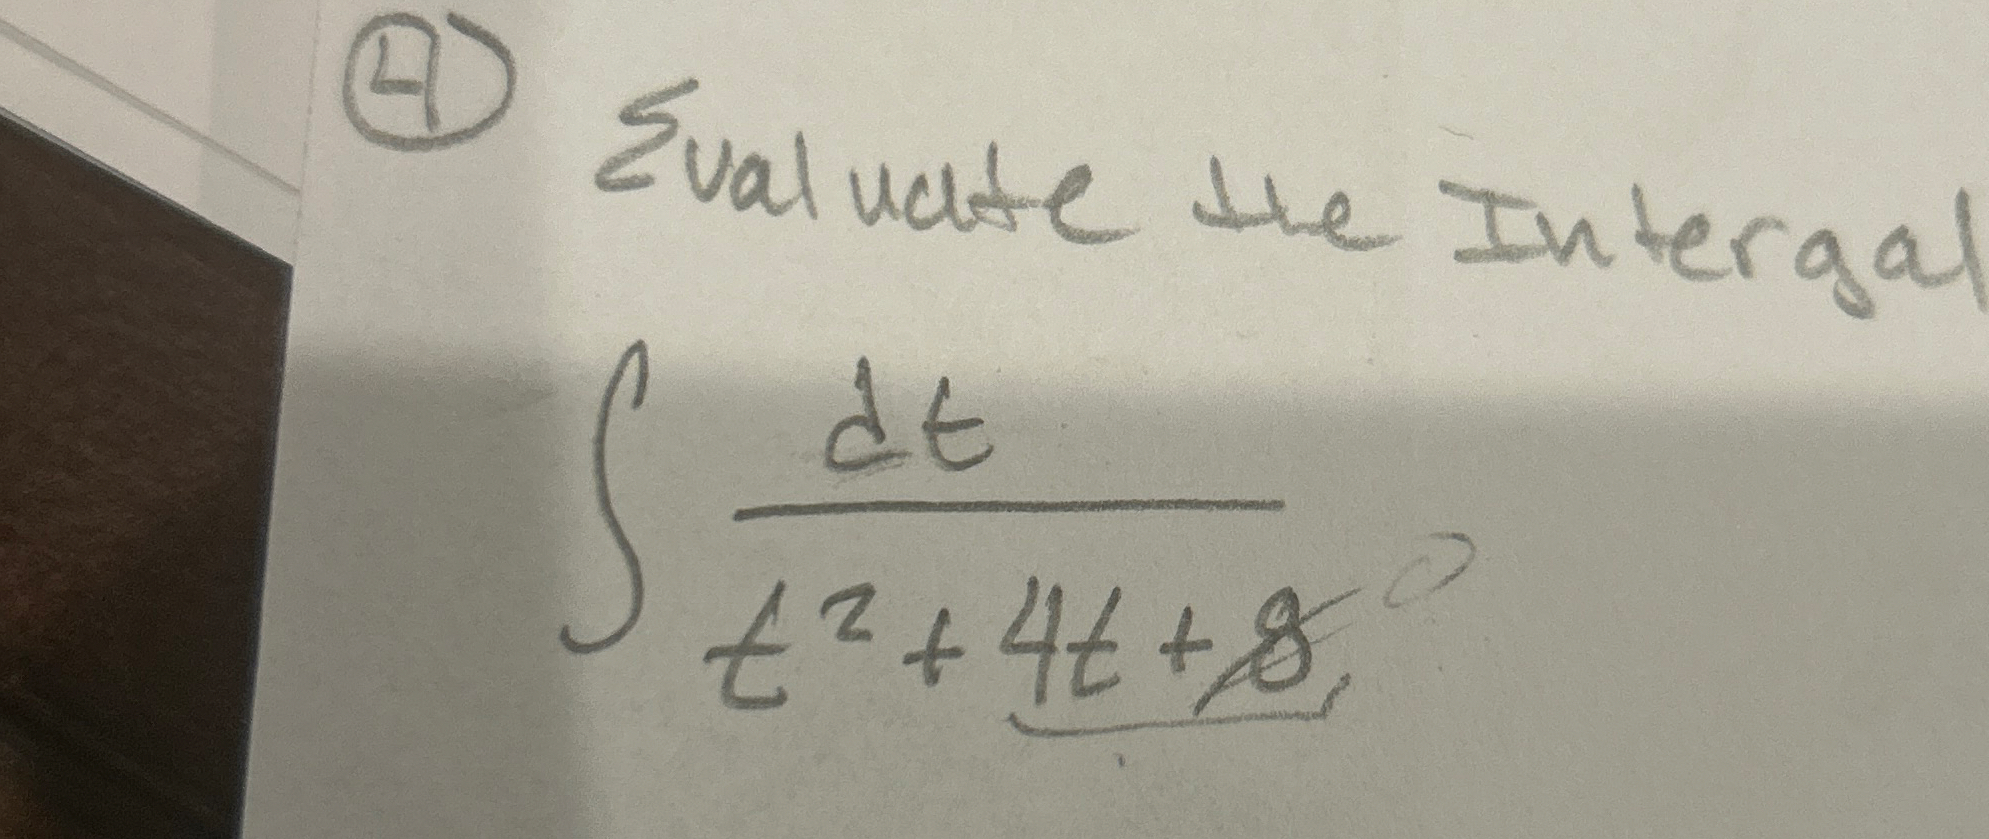 4
Evaluate the Intergal
∫ dt
t² + 4t + 8 0